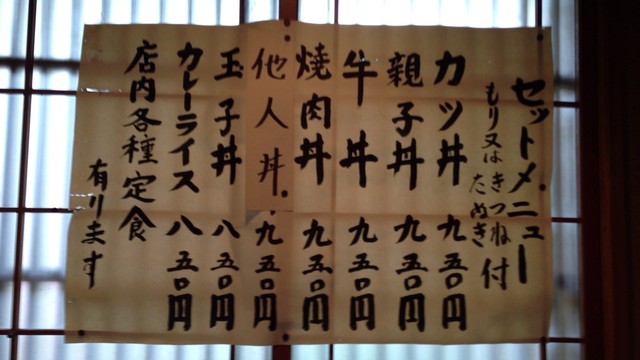 セットメニュー
もり又はきつねたぬき付
カツ丼 九五〇円
親子丼 九五〇円
牛丼 九五〇円
焼肉丼 九五〇円
他人丼 九五〇円
玉子丼 八五〇円
カレーライス 八五〇円
店内各種定食
有ります